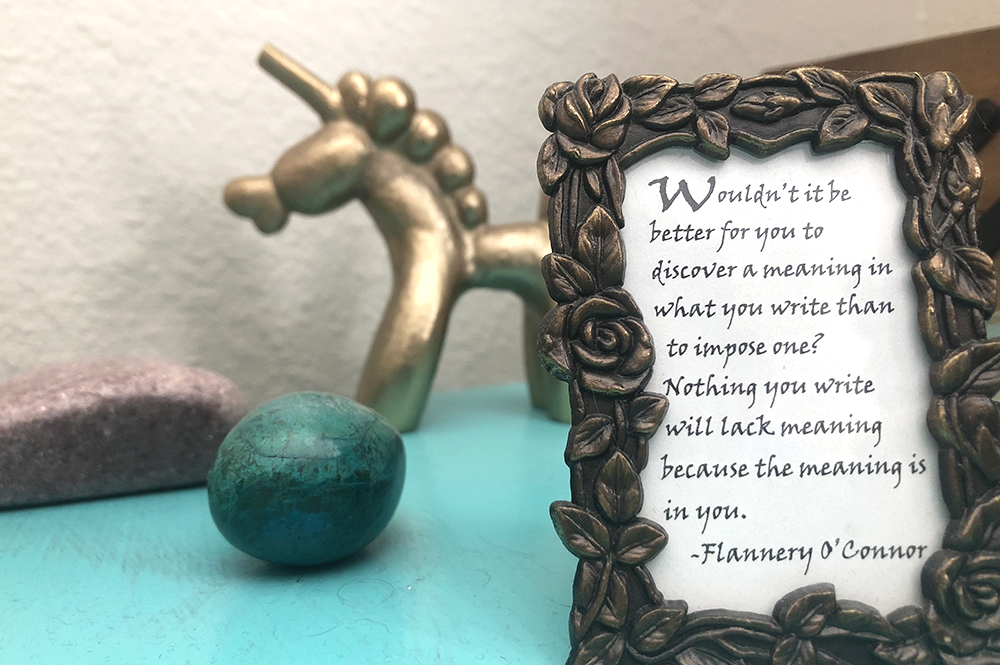 Wouldn't it be
better for you to
discover a meaning in
what you write than
to impose one?
Nothing you write
will lack meaning
because the meaning is
in you.
-Flannery O'Connor